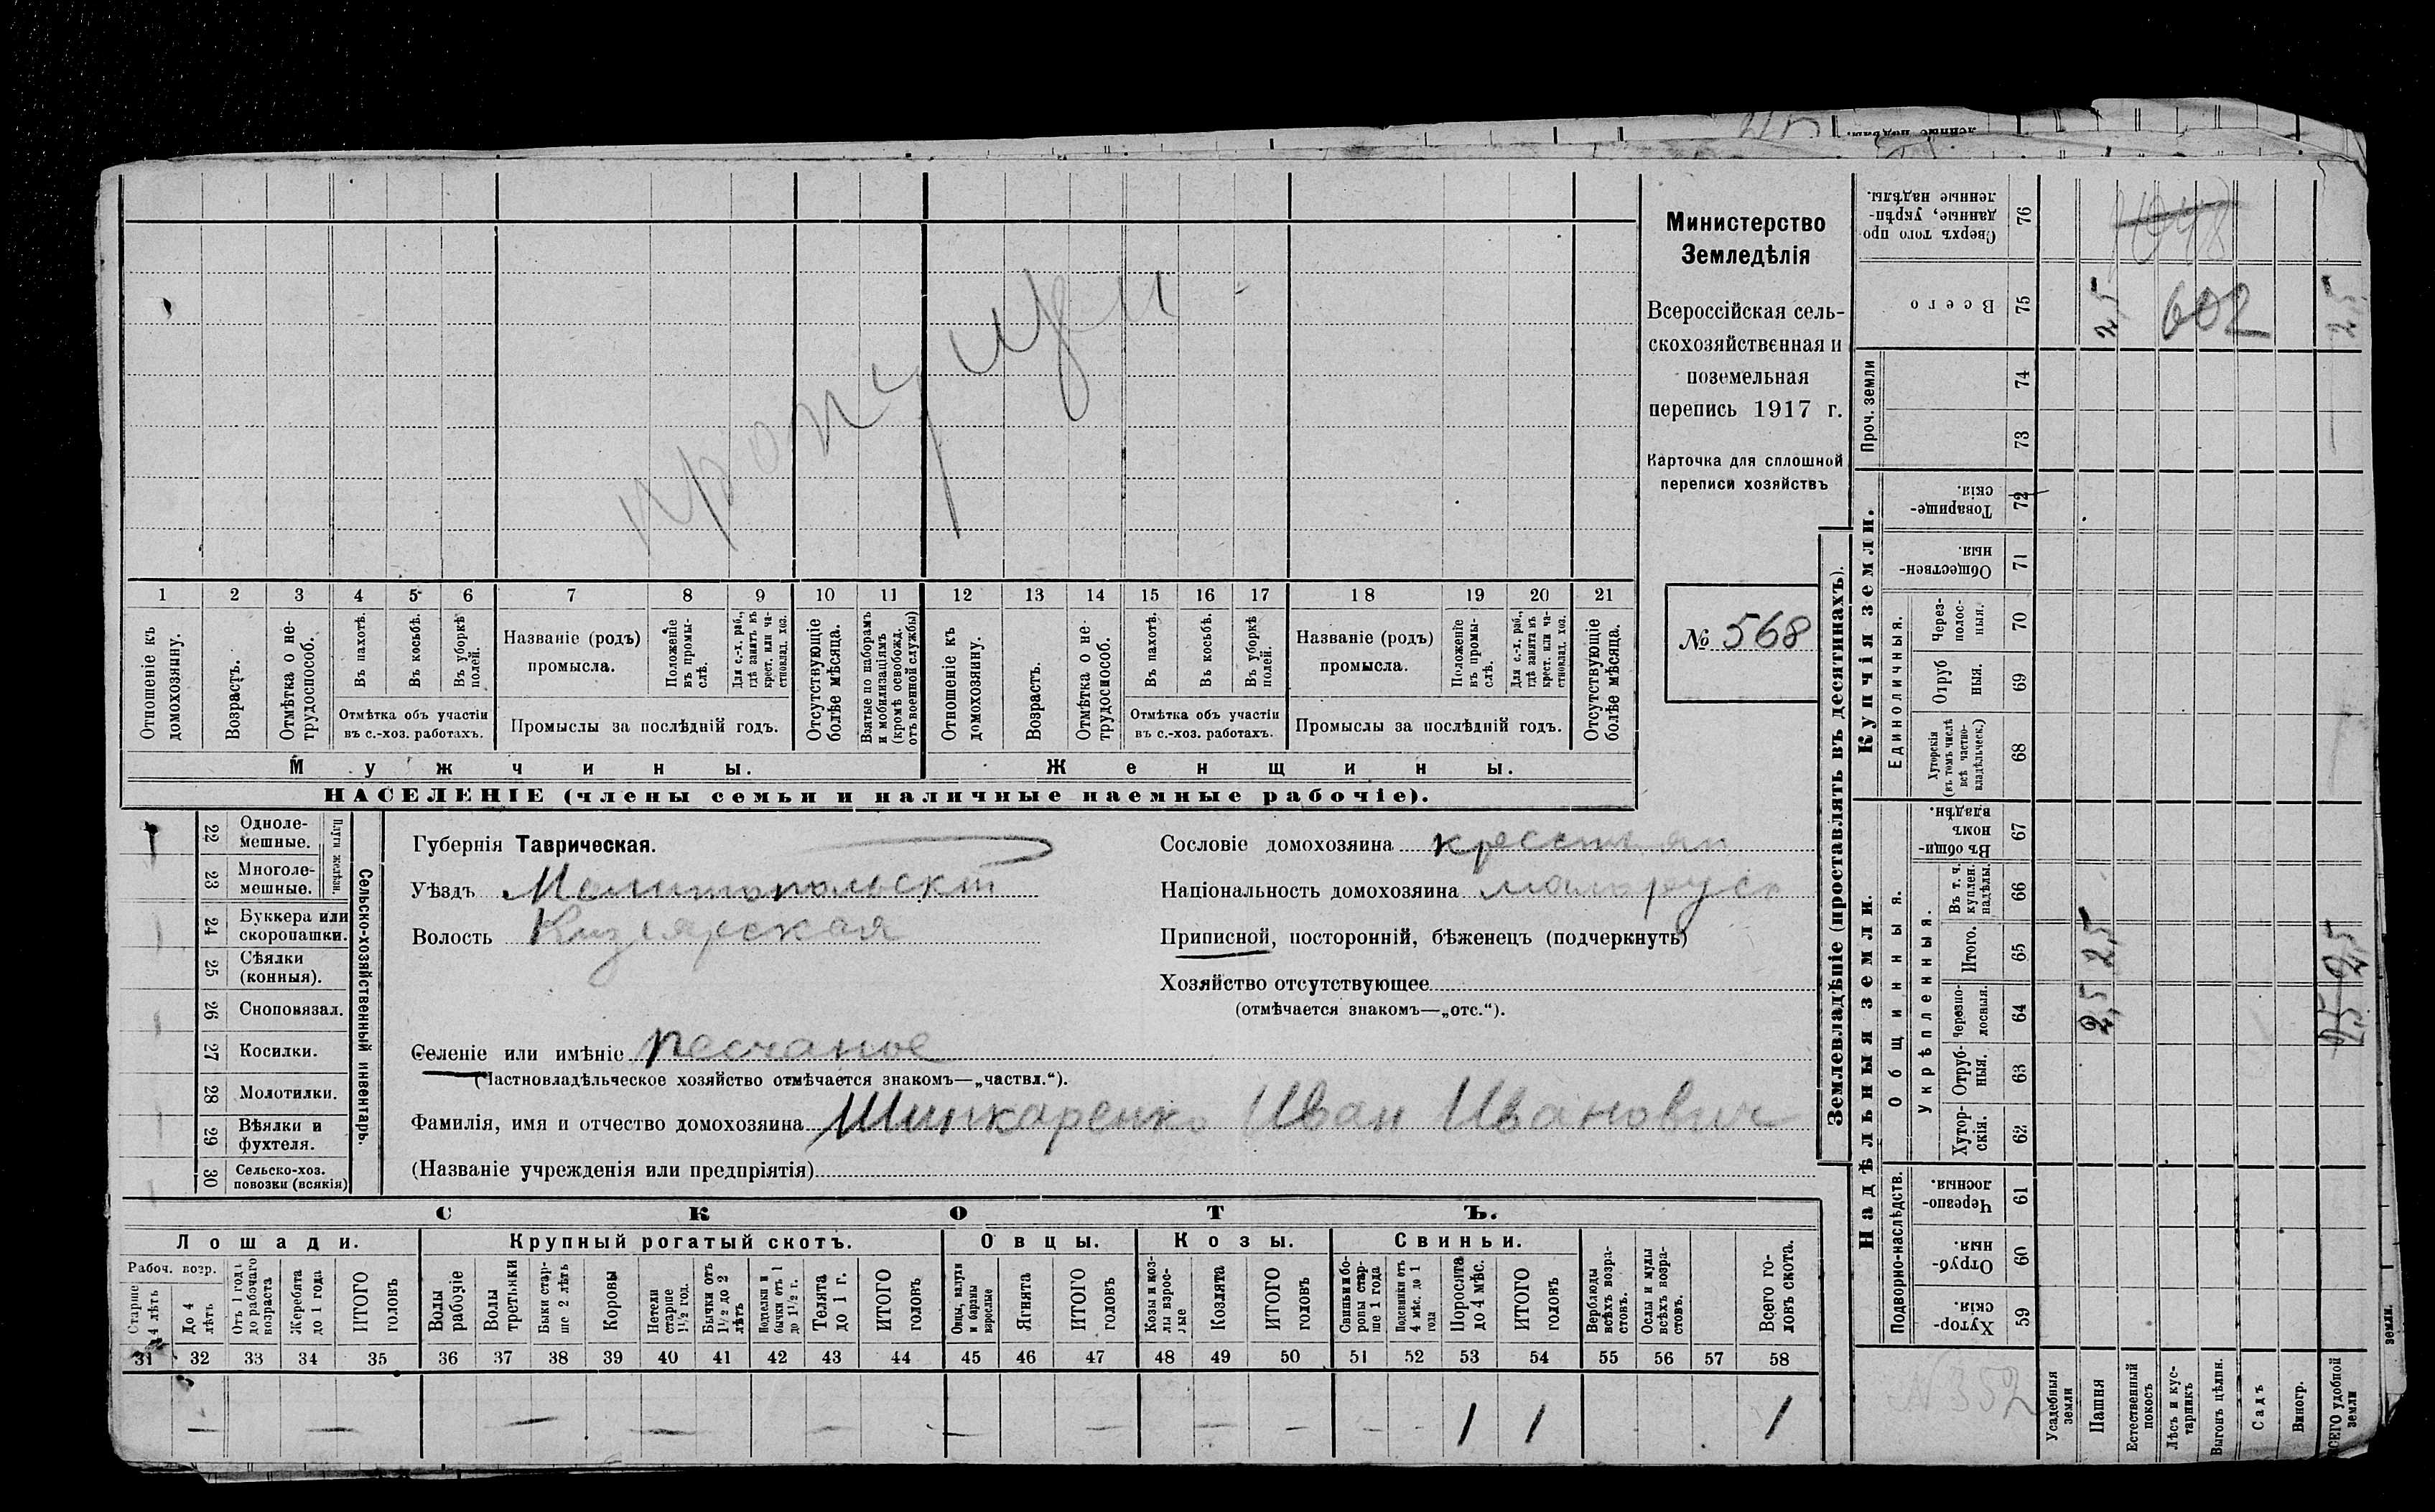 пропущен
1 2 3 4 5 6 7 8 9 10 11 12 13 14 15 16 17 18 19 20 21
Отношеніе къ домохозяину.
Возрастъ.
Отмѣтка о не-
трудоспособ.
Въ пахотѣ.
Въ косьбѣ.
Въ уборкѣ полей.
Отмѣтка объ участіи
въ с.-хоз. работахъ.
Названіе (родъ)
промысла.
Положеніе
въ промы-
слѣ.
Для с.-х. раб.,
гдѣ занятъ въ
крест. или ча-
стновлад. хоз.
Промыслы за послѣдній годъ.
Отсутствующіе
болѣе мѣсяца.
Взятые по наборамъ
и мобилизаціямъ
(кромѣ освобожд.
отъ военной службы)
Отношеніе къ
домохозяину.
Возрастъ.
Отмѣтка о не-
трудоспособ.
Въ пахотѣ.
Въ косьбѣ.
Въ уборкѣ
полей.
Отмѣтка объ участіи
въ с.-хоз. работахъ.
Названіе (родъ)
промысла.
Положеніе
въ промы-
слѣ.
Для с.-х. раб.,
гдѣ занятъ въ
крест. или ча-
стновлад. хоз.
Промыслы за послѣдній годъ.
Отсутствующіе
болѣе мѣсяца.
Мужчины.
Женщины.
НАСЕЛЕНІЕ (члены семьи и наличные наемные рабочіе).
Министерство
Земледѣлія
Всероссійская сель-
скохозяйственная и
поземельная
перепись 1917 г.
Карточка для сплошной
переписи хозяйствъ
№ 568
22 Одноле-
мешные.
23 Многоле-
мешные.
Плуги желѣзн.
24 Буккера или
скоропашки.
25 Сѣялки
(конныя).
26 Сноповязал.
27 Косилки.
28 Молотилки.
29 Вѣялки и
фухтеля.
30 Сельско-хоз.
повозки (всякія)
Сельско-хозяйственный инвентарь.
Губернія Таврическая.
Уѣздъ Мелитопольскт
Волость Кизеярская
Селеніе или имѣніе песчаное
(Частновладѣльческое хозяйство отмѣчается знакомъ—„частвл.“).
Фамилія, имя и отчество домохозяина Шинкаренко Иван Иванович
(Названіе учрежденія или предпріятія)
Сословіе домохозяина крестьян
Національность домохозяина малорус
Приписной, посторонній, бѣженецъ (подчеркнуть)
Хозяйство отсутствующее
(отмѣчается знакомъ—„отс.“).
СКОТЪ.
Лошади. Крупный рогатый скотъ. Овцы. Козы. Свиньи.
Рабоч. возр.
Старше
4 лѣтъ
До 4
лѣтъ
Отъ 1 года
до рабочаго
возраста
Жеребята
до 1 года
ИТОГО
головъ
Волы
рабочіе
Волы
третьяки
Быки стар-
ше 2 лѣтъ
Коровы
Нетели
старше
1½ год.
Бычки отъ
1½ до 2
лѣтъ
Подтелки и
бычки отъ 1
до 1½ г.
Телята
до 1 г.
ИТОГО
головъ
Овцы, валухи
и бараны
взрослые
Ягнята
ИТОГО
головъ
Козы и коз-
лы взрос-
лые
Козлята
ИТОГО
головъ
Свиньи и бо-
ровы стар-
ше 1 года
Подсвинки отъ
4 мѣс. до 1
года
Поросята
до 4 мѣс.
ИТОГО
головъ
Верблюды
всѣхъ возра-
стовъ.
Ослы и мулы
всѣхъ возра-
стовъ.
Всего го-
ловъ скота.
31 32 33 34 35 36 37 38 39 40 41 42 43 44 45 46 47 48 49 50 51 52 53 54 55 56 57 58
— — — — — — — — — — — 1 1 1
Землевладѣніе (проставлять въ десятинахъ).
Надѣльныя земли.
Купчія земли.
Проч. земли
Подворно-наслѣдств.
Общинныя.
Укрѣпленныя.
Единоличныя.
Хутор-
скія.
59
Отруб-
ныя.
60
Черезпо-
лосныя.
61
Хутор-
скія.
62
Отруб-
ныя.
63
Черезпо-
лосныя.
64
Итого.
65
Въ т. ч.
куплен.
надѣлы.
66
Въ общи-
номъ
владѣн.
67
Хуторскія
(въ томъ числѣ
всѣ частно-
владѣльческ.)
68
Отруб
ныя.
69
Через-
полос-
ныя.
70
Обществен-
ныя.
71
Товарище-
скія.
72
73
74
Всего
75
Сверхъ того про
данные, укрѣп-
ленные надѣлы.
76
Усадебныя
земли
Пашня
2,5 2,5 2,5
Естественный
покосъ
Лѣсъ и кус-
тарникъ
Выгонъ цѣлин.
Садъ
Виногр.
ВСЕГО удобной
земли
2,5 2,5 2,5
602
N 352
земли.